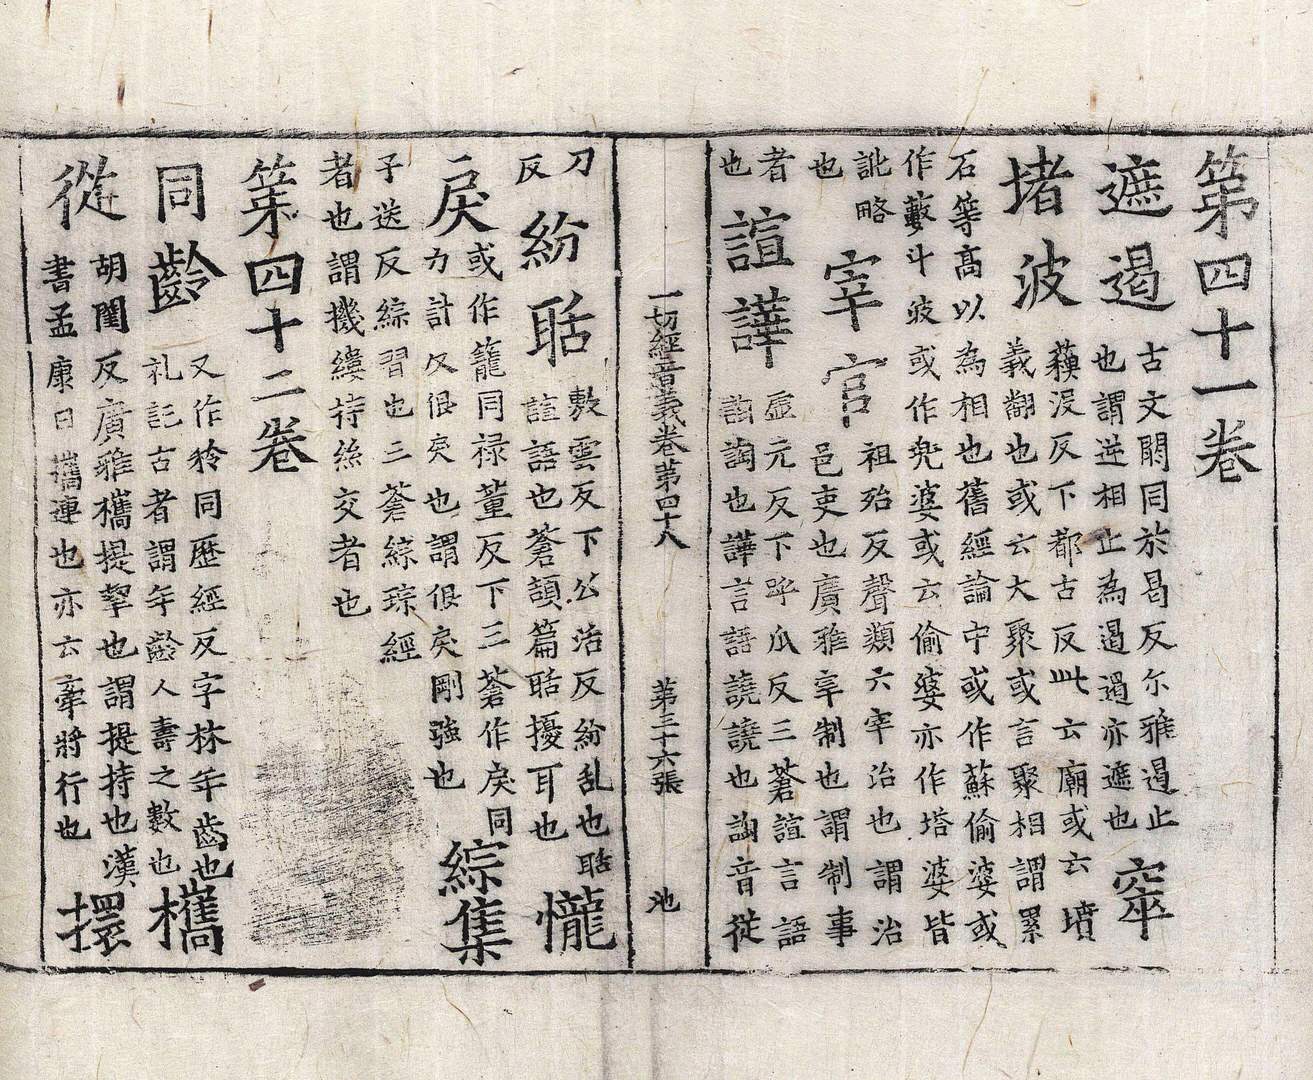 第四十一卷
遮遏
古文閼同於曷反尔雅遏止
也謂逆相止為遏遏亦遮也
窣
堵波
蘓沒反下都古反此云廟或云墳
義翻也或云大聚或言聚相謂累
石等高以為相也舊經論中或作蘇偷婆或
作藪斗波或作兜婆或云偷婆亦作塔婆皆
訛略
也
宰官
祖殆反聲類云宰治也謂治
邑吏也廣雅宰制也謂制事
者
也
諠譁
虛元反下呼瓜反三蒼諠言語
詾詾也譁言語譊譊也詾音從
一切經音義卷第四十八
第三十六張
池
刀
反
紛聒
敷雲反下公活反紛乱也聒
諠語也蒼頡篇聒擾耳也
㦕
戾
或作籠同禄董反下三蒼作戾同
力計反佷戾也謂佷戾剛強也
綜集
子送反綜習也三蒼綜琮經
者也謂機縷持絲交者也
第四十二卷
同齡
又作秢同歷經反字林年齒也
礼記古者謂年齡人壽之數也
㩗
從
胡閨反廣雅㩗提挈也謂提持也漢
書孟康曰㩗連也亦云牽將行也
擐